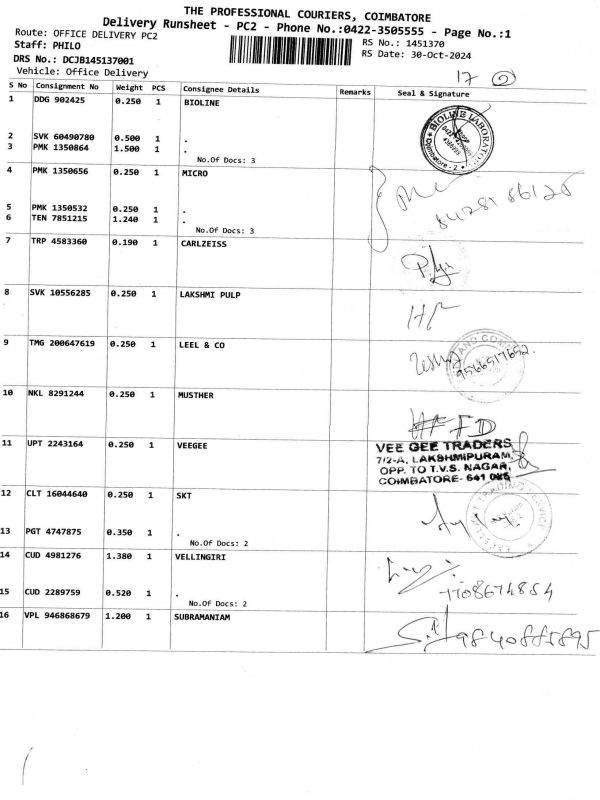 THE PROFESSIONAL COURIERS, COIMBATORE
Delivery Runsheet - PC2 - Phone No.:0422-3505555 - Page No.:1
Route: OFFICE DELIVERY PC2
RS No.: 1451370
Staff: PHILO
RS Date: 30-Oct-2024
DRS No.: DCJB145137001
Vehicle: Office Delivery
17 2
S No Consignment No Weight PCS Consignee Details Remarks Seal & Signature
1 DDG 902425 0.250 1 BIOLINE
2 SVK 60490780 0.500 1 .
3 PMK 1350864 1.500 1 .
No.Of Docs: 3
4 PMK 1350656 0.250 1 MICRO
5 PMK 1350532 0.250 1 .
6 TEN 7851215 1.240 1 .
No.Of Docs: 3
7 TRP 4583360 0.190 1 CARLZEISS
8 SVK 10556285 0.250 1 LAKSHMI PULP
9 TMG 200647619 0.250 1 LEEL & CO
9566517652.
10 NKL 8291244 0.250 1 MUSTHER
11 UPT 2243164 0.250 1 VEEGEE
VEE GEE TRADERS
7/2-A, LAKSHMIPURAM,
OPP. TO T.V.S. NAGAR,
COIMBATORE- 641 025
12 CLT 16044640 0.250 1 SKT
13 PGT 4747875 0.350 1 .
No.Of Docs: 2
14 CUD 4981276 1.380 1 VELLINGIRI
7708674854
15 CUD 2289759 0.520 1 .
No.Of Docs: 2
16 VPL 946868679 1.200 1 SUBRAMANIAM
9840885895